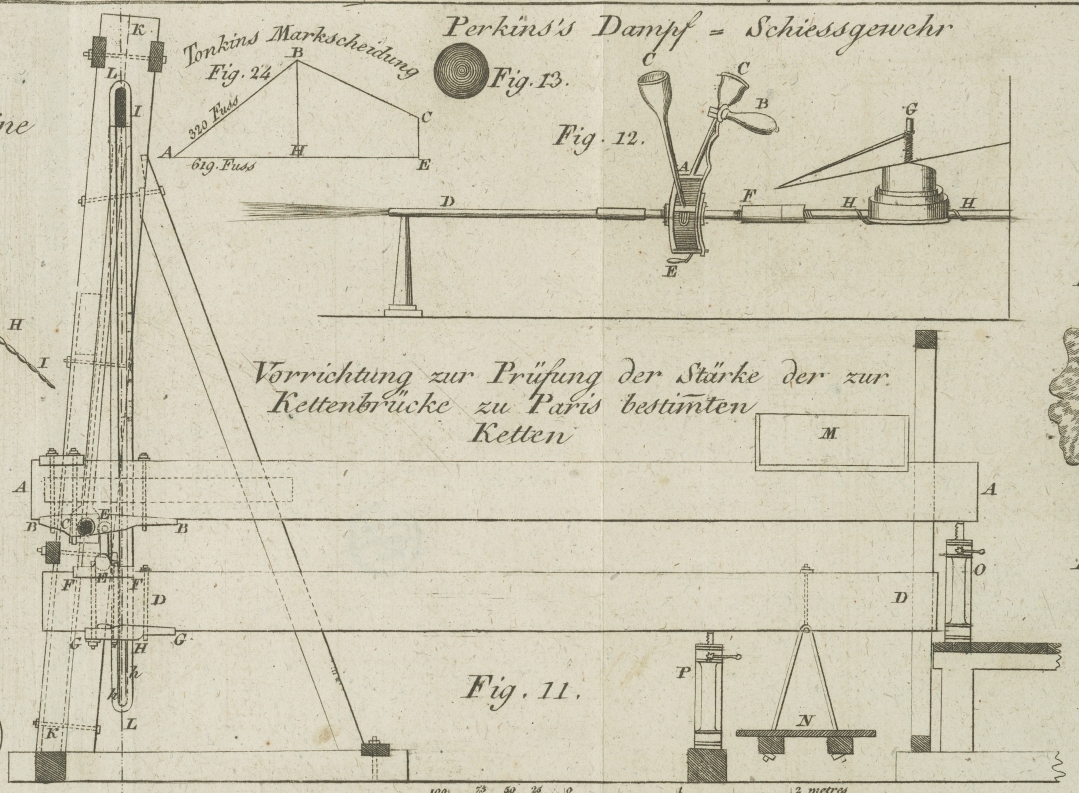 Perkins's Dampf = Schiessgewehr
Tonkins Markscheidung
Fig. 24
B
320 Fuss
A
H
C
E
619. Fuss
Fig. 13.
Fig. 12.
C
C
B
A
G
D
F
H
H
E
K
L
I
ine
H
I
Vorrichtung zur Prüfung der Stärke der zur
Kettenbrücke zu Paris bestim̄ten
Ketten
M
A
A
B
C
E
B
O
F
E
F
D
D
G
H
G
P
h
h
Fig. 11.
L
N
K
100 75 50 25 0 1 2 metres